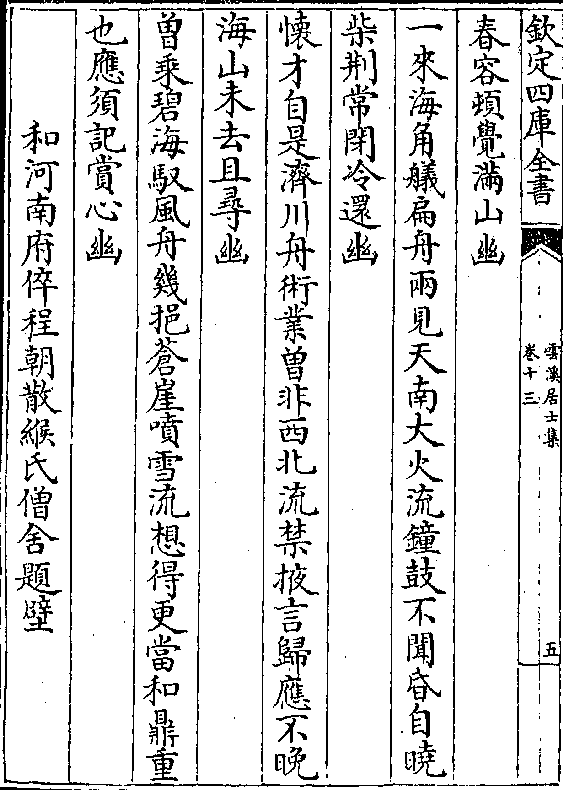 欽定四庫全書
雲溪居士集
卷十三
五
春容頓覺滿山幽
一來海角艤扁舟兩見天南大火流鐘鼓不聞昏自曉
柴荆常閉冷還幽
懐才自是濟川舟術業曽非西北流禁掖言歸應不晚
海山未去且尋幽
曽乘碧海馭風舟幾挹蒼崖噴雪流想得更當和鼎重
也應須記賞心幽
和河南府倅程朝散緱氏僧舍題壁